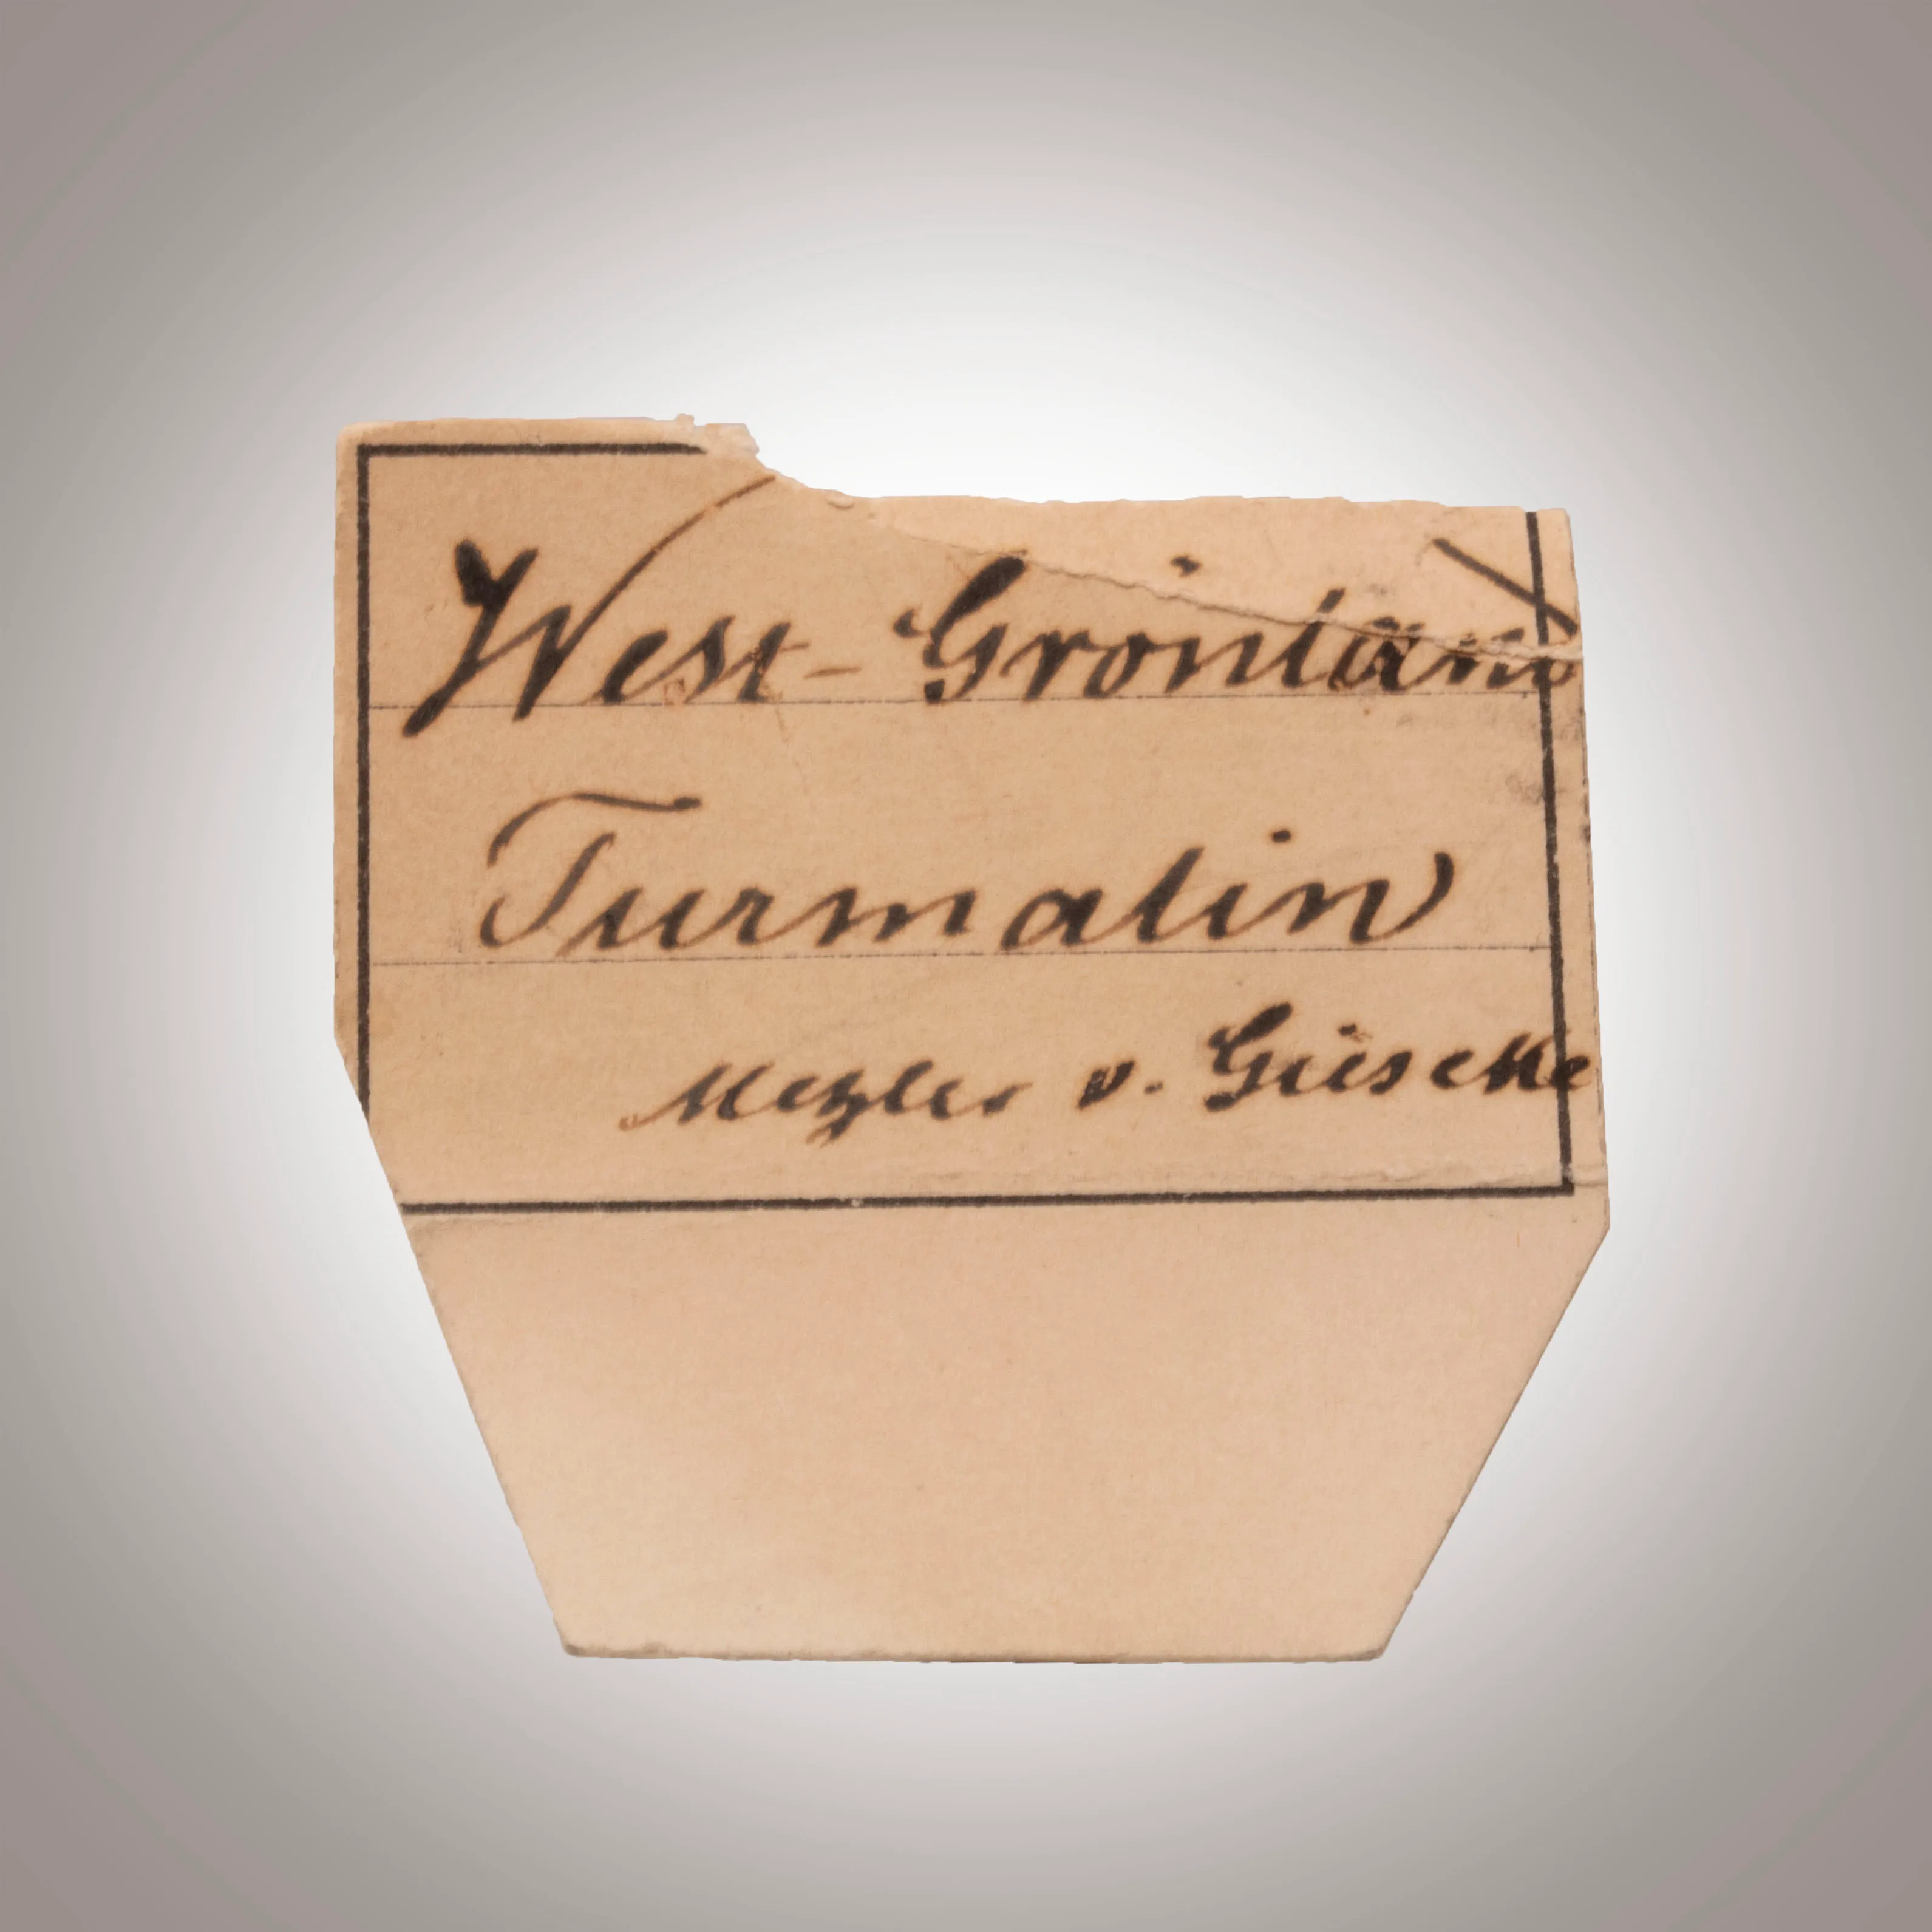 West-Grönland
Turmalin
Metzler v. Giesecke